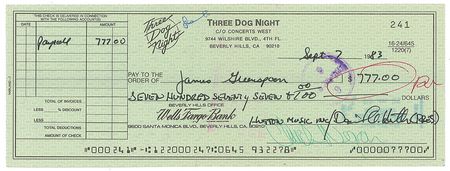 THIS CHECK IS DELIVERED IN CONNECTION
WITH THE FOLLOWING ACCOUNTS
DATE AMOUNT
Payroll 777.00
TOTAL OF INVOICES
LESS % DISCOUNT
LESS
TOTAL DEDUCTIONS
AMOUNT OF CHECK
Three Dog Night
THREE DOG NIGHT
C/O CONCERTS WEST
9744 WILSHIRE BLVD., 4TH FL
BEVERLY HILLS, CA 90210
241
16-24/645
1220(7)
Sept 7 1983
PAY TO THE ORDER OF James Greenspoon $ 777.00
SEVEN HUNDRED SEVENTY SEVEN & 00/100 DOLLARS
BEVERLY HILLS OFFICE
Wells Fargo Bank
9600 SANTA MONICA BLVD., BEVERLY HILLS, CA 90210
HUTTON MUSIC INC/ (PRES)
⑈000241⑈ ⑆122000247⑆0645 932278⑈ ⑈0000077700⑈